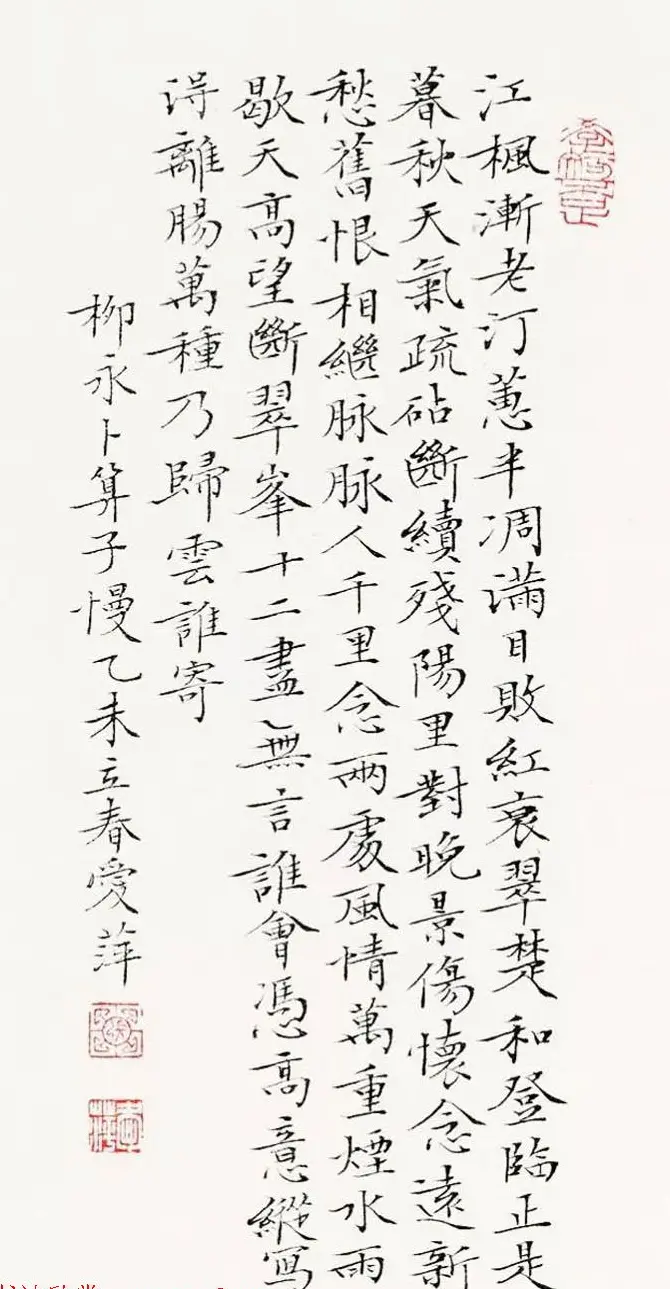 江楓漸老汀蕙半凋滿目敗紅衰翠楚和登臨正是
暮秋天氣疏砧斷續殘陽里對晚景傷懷念遠新
愁舊恨相繼脉脉人千里念兩處風情萬重煙水雨
歇天高望斷翠峯十二盡無言誰會馮高意縱寫
得離腸萬種乃歸雲誰寄
柳永卜算子慢乙未立春愛萍